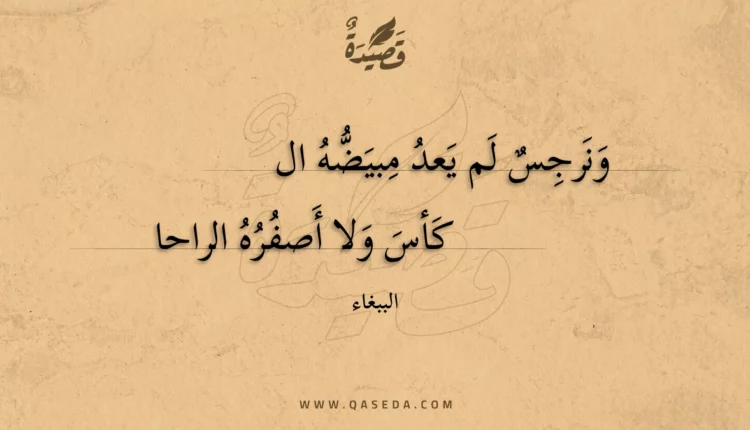 قَصِيْدَةٌ
وَنَرجِسٌ لَم يَعدُ مِبيَضُّهُ ال
كَأسَ وَلا أَصفُرُهُ الراحا
الببغاء
WWW.QASEDA.COM